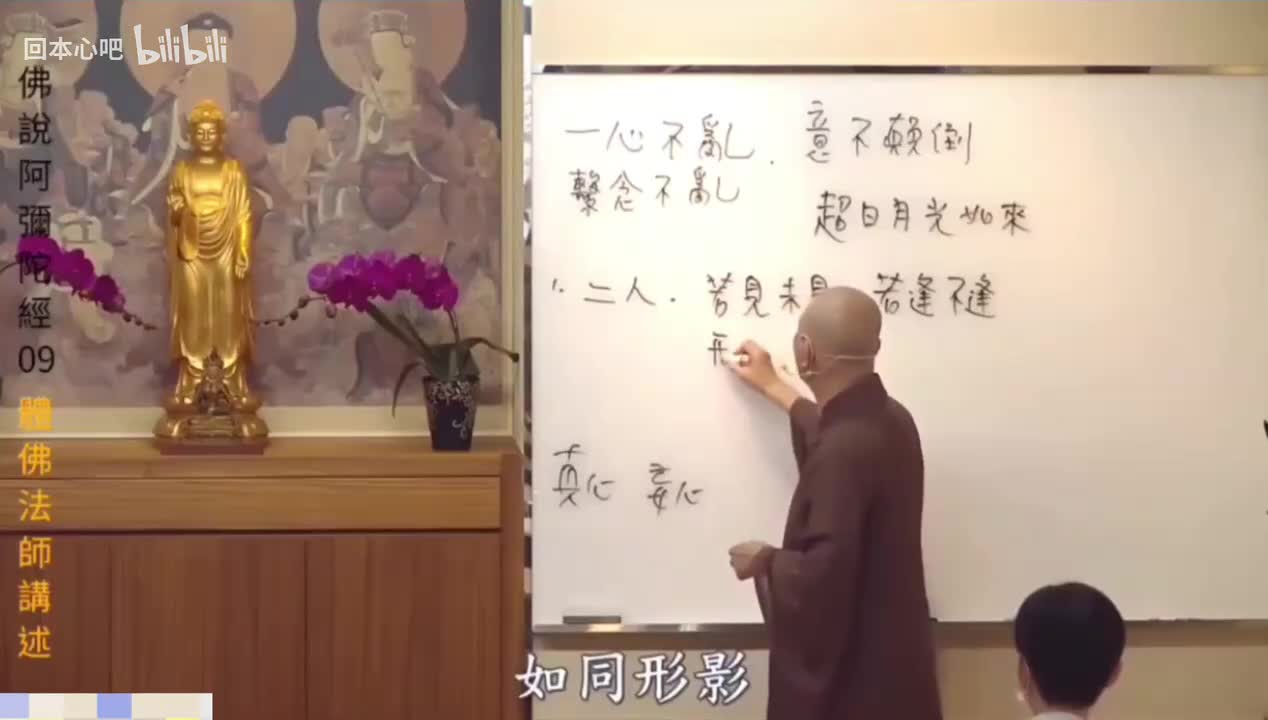 回本心吧 bilibili
佛說阿彌陀經09 體佛法師講述
一心不亂. 意不顛倒
繫念不亂
超日月光如來
1. 二人. 若見未見 若逢不逢
形
真心 妄心
如同形影